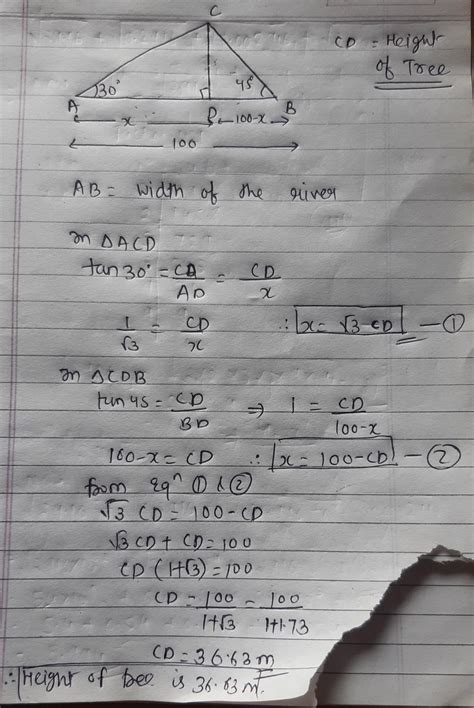 C
CD = Height
of Tree
30°
45
A
D
B
x
100-x
100
AB = width of the river
In ΔACD
tan 30° = CD/AD = CD/x
1/√3 = CD/x ∴ x = √3 CD — ①
In ΔCDB
tan 45 = CD/BD ⇒ 1 = CD/100-x
100-x = CD ∴ x = 100-CD — ②
from Eqⁿ ① & ②
√3 CD = 100 - CD
√3 CD + CD = 100
CD (1+√3) = 100
CD = 100/1+√3 = 100/1+1.73
CD = 36.63 m
∴ Height of tree is 36.63 m.